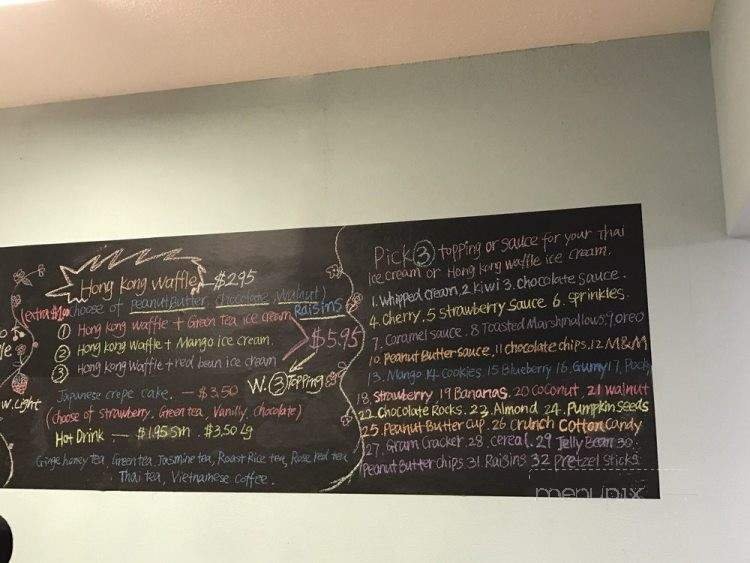 Hong Kong Waffle $2.95
(extra $1.00 choose of Peanut Butter, Chocolate, Walnut)
Raisins
① Hong Kong Waffle + Green Tea ice cream
② Hong Kong Waffle + Mango ice cream.
③ Hong Kong Waffle + red bean ice cream
$5.95
W. ③ Topping
Japanese crepe cake. — $3.50
(choose of strawberry, Green tea, Vanilly, chocolate)
Hot Drink — $1.95 Sm . $3.50 Lg
Ginge honey tea, Green tea, Jasmine tea, Roast Rice tea, Rose red tea,
Thai tea, Vietnamese coffee.
w. Light
Pick ③ topping or sauce for your Thai
ice cream or Hong Kong waffle ice cream.
1. Whipped cream. 2 Kiwi 3. chocolate sauce.
4. Cherry. 5 strawberry sauce 6. sprinkles.
7. Caramel sauce. 8 Toasted Marshmallows. 9 oreo
10. Peanut Butter Sauce, 11 chocolate chips, 12 M&M
13. Mango 14. Cookies 15 Blueberry 16. Gummy 17. Pocky
18. Strawberry 19 Bananas. 20 coconut 21 walnut
22 Chocolate Rocks. 23. Almond 24. Pumpkin Seeds
25. Peanut Butter cup 26 crunch Cotton Candy
27. Gram Cracker. 28. cereal. 29 Jelly Bean 30.
Peanut Butter chips. 31 Raisins 32 pretzel sticks
menupix